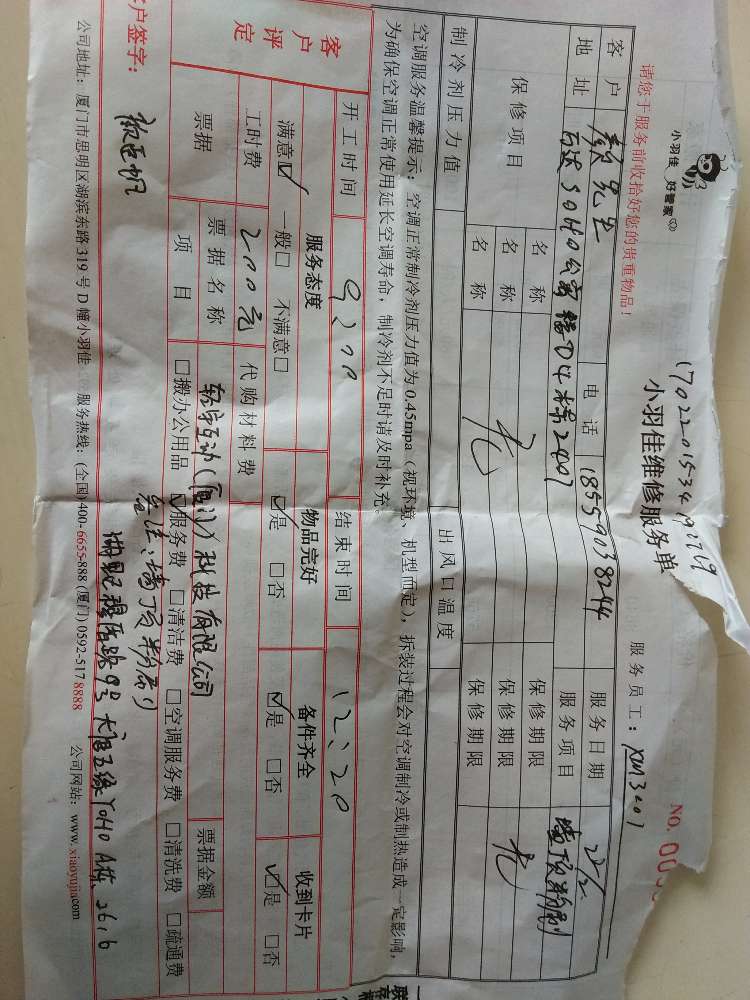 小羽佳 好管家
17022015341
小羽佳维修服务单
NO. 00
请您于服务前收拾好您的贵重物品！
服务员工：XM3001
客户 颜先生 电话 18559038244 服务日期 22/2
地址 百达SOHO公寓 D 2407 服务项目 墙顶粉刷
保修项目 名称 无 保修期限 无
名称 保修期限
名称 保修期限
制冷剂压力值 出风口温度
空调服务温馨提示：空调正常制冷剂压力值为0.45mpa（视环境、机型而定），拆装过程会对空调制冷或制热造成一定影响，
为确保空调正常使用延长空调寿命，制冷剂不足时请及时补充。
开工时间 9:00 结束时间 12:20
客户评定 服务态度 物品完好 备件齐全 收到卡片
满意☑ 一般□ 不满意□ ☑是 □否 ☑是 □否 ☑是 □否
工时费 200元 代购材料费
票据 票据名称 软宇互动(厦门)科技有限公司 票据金额
项目 □搬办公用品 ☑服务费 □清洁费 □空调服务费 □清洗费 □疏通费
备注：墙顶粉刷
客户签字：
9号 YOHO A栋 2616
公司地址：厦门市思明区湖滨东路319号D幢小羽佳 服务热线：(全国)400-6655-888 (厦门)0592-517 8888 公司网站：www.xiaoyujia.com